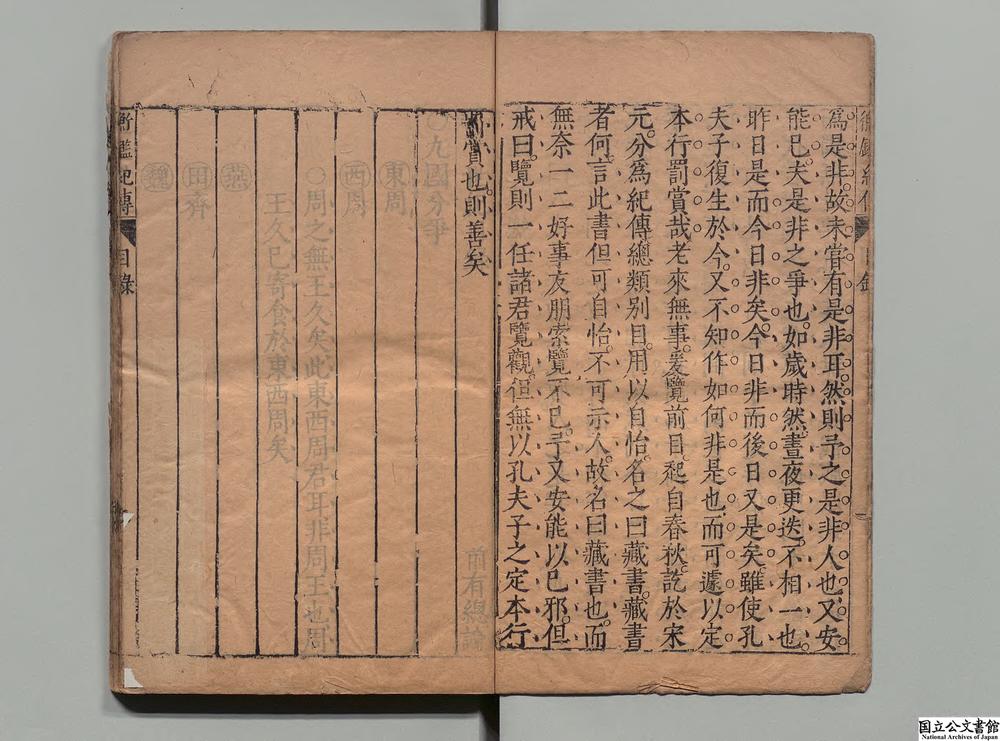 為是非故未嘗有是非耳然則予之是非人也又安
能已夫是非之爭也如歲時然晝夜更迭不相一也
昨日是而今日非矣今日非而後日又是矣雖使孔
夫子復生於今又不知作如何非是也而可遽以定
本行罰賞哉老來無事爰覽前目起自春秋訖於宋
元分為紀傳總類別目用以自怡名之曰藏書藏書
者何言此書但可自怡不可示人故名曰藏書也而
無奈一二好事友朋索覽不已予又安能以已邪但
戒曰覽則一任諸君覽觀但無以孔夫子之定本行
罰賞也則善矣
○九國分爭
前有總論
東周
西周
○周之無王久矣此東西周君耳非周王也周
王久已寄食於東西周矣
燕
田齊
魏
衡鑑紀傳 目錄
国立公文書館
National Archives of Japan